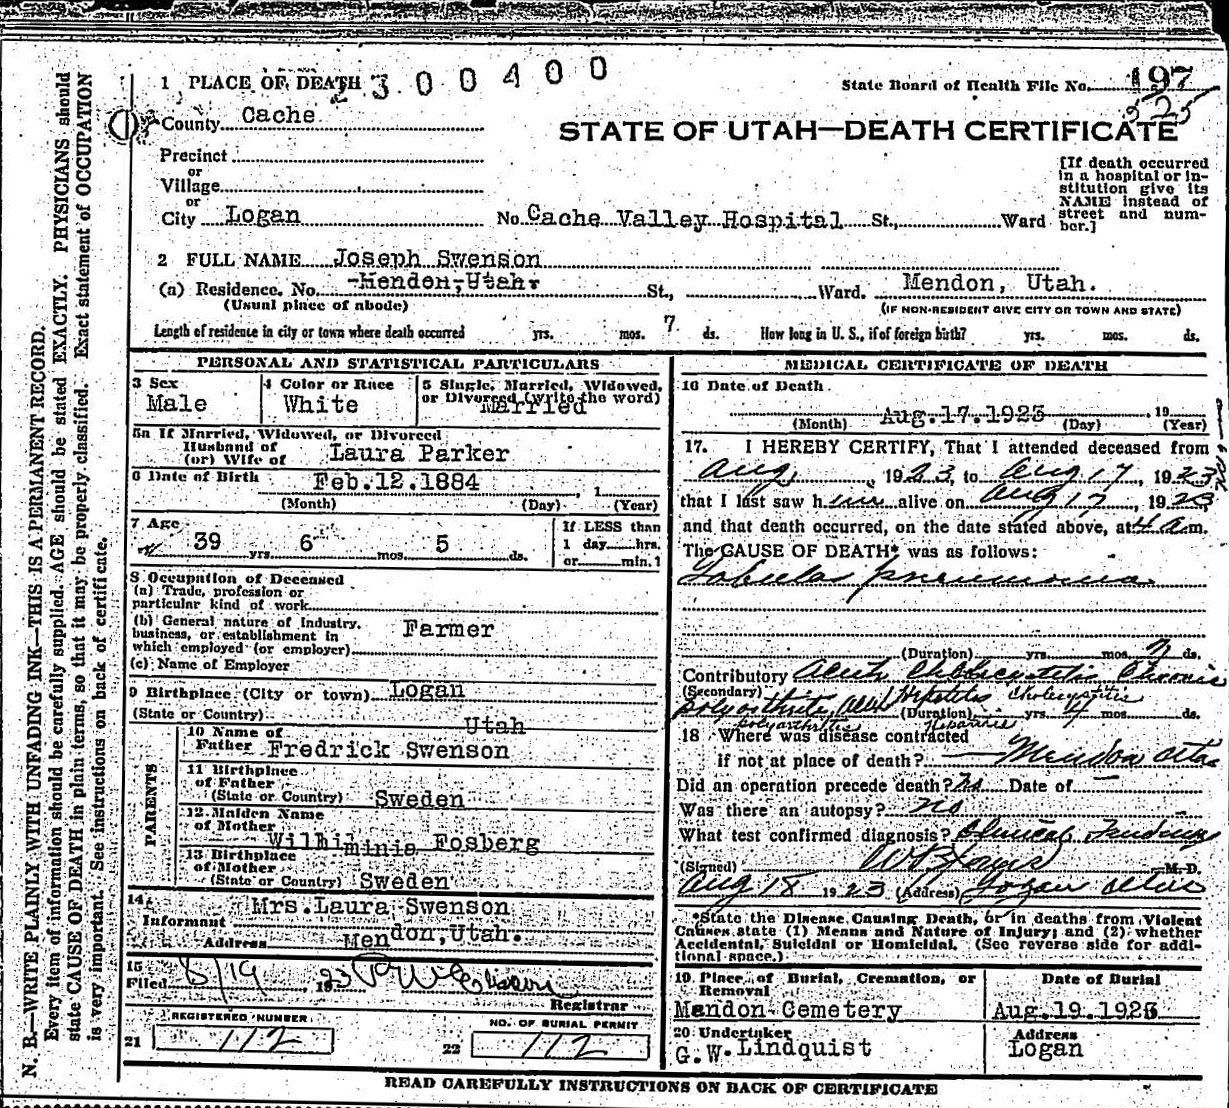 1 PLACE OF DEATH 2300400
State Board of Health File No. 197
525
County Cache
STATE OF UTAH—DEATH CERTIFICATE
Precinct
or
Village
or
City Logan No. Cache Valley Hospital St., Ward
[If death occurred in a hospital or in-
stitution give its
NAME instead of
street and num-
ber.]
2 FULL NAME Joseph Swenson
(a) Residence. No. Mendon, Utah. St., Ward. Mendon, Utah.
(Usual place of abode) (IF NON-RESIDENT GIVE CITY OR TOWN AND STATE)
Length of residence in city or town where death occurred yrs. mos. 7 ds. How long in U. S., if of foreign birth? yrs. mos. ds.
PERSONAL AND STATISTICAL PARTICULARS
3 Sex Male
4 Color or Race White
5 Single, Married, Widowed,
or Divorced (write the word)
Married
5a If Married, Widowed, or Divorced
Husband of
(or) Wife of Laura Parker
6 Date of Birth Feb.12.1884
(Month) (Day) , 1 (Year)
7 Age 39 yrs. 6 mos. 5 ds.
If LESS than
1 day hrs.
or min. ?
8 Occupation of Deceased
(a) Trade, profession or
particular kind of work
(b) General nature of Industry,
business, or establishment in
which employed (or employer) Farmer
(c) Name of Employer
9 Birthplace (City or town) Logan
(State or Country) Utah
PARENTS
10 Name of
Father Fredrick Swenson
11 Birthplace
of Father
(State or Country) Sweden
12 Maiden Name
of Mother Wilhiminia Fosberg
13 Birthplace
of Mother
(State or Country) Sweden
14 Informant Mrs.Laura Swenson
Address Mendon,Utah.
15 Filed 8/19, 1923
Registrar
REGISTERED NUMBER
21 112
NO. OF BURIAL PERMIT
22 112
MEDICAL CERTIFICATE OF DEATH
16 Date of Death
Aug.17.1923 , 19
(Month) (Day) (Year)
17. I HEREBY CERTIFY, That I attended deceased from
Aug, 1923, to Aug 17, 1923
that I last saw him alive on Aug 17, 1923
and that death occurred, on the date stated above, at 4 a.m.
The CAUSE OF DEATH* was as follows:
Lobular pneumonia
(Duration) yrs. mos. ds.
Contributory Acute Chronic
(Secondary) polyarthritis, Hepatitis Cholecystitis
(Duration) yrs. mos. ds.
polyarthritis
18 Where was disease contracted
if not at place of death? Mendon Utah
Did an operation precede death? No Date of —
Was there an autopsy? no
What test confirmed diagnosis? Clinical Findings
(Signed) M. D.
Aug 18 1923 (Address) Logan Utah
*State the Disease Causing Death, or in deaths from Violent
Causes state (1) Means and Nature of Injury; and (2) whether
Accidental, Suicidal or Homicidal. (See reverse side for addi-
tional space.)
19 Place of Burial, Cremation, or
Removal
Mendon Cemetery
Date of Burial
Aug.19.1923
20 Undertaker
G.W. Lindquist
Address
Logan
READ CAREFULLY INSTRUCTIONS ON BACK OF CERTIFICATE
N. B.—WRITE PLAINLY WITH UNFADING INK—THIS IS A PERMANENT RECORD.
Every item of information should be carefully supplied. AGE should be stated EXACTLY. PHYSICIANS should
state CAUSE OF DEATH in plain terms, so that it may be properly classified. Exact statement of OCCUPATION
is very important. See instructions on back of certificate.